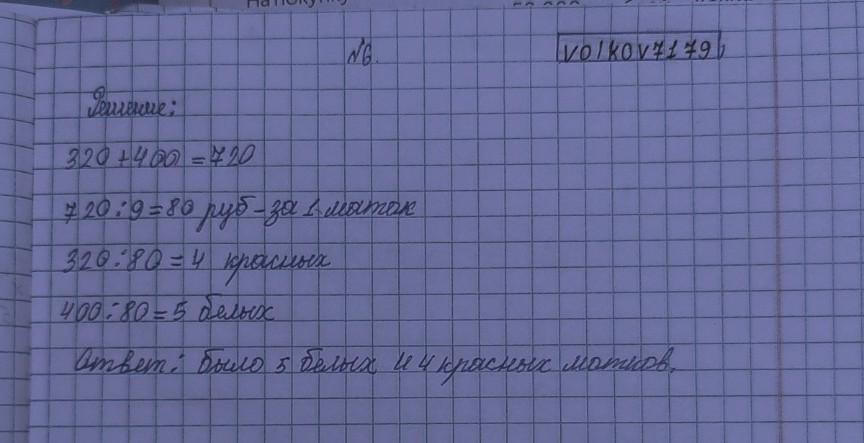 На покупку
№6.
volkov7179
Решение:
320+400=720
720:9=80 руб-за 1 моток
320:80=4 красных
400:80=5 белых
Ответ: было 5 белых и 4 красных мотков.